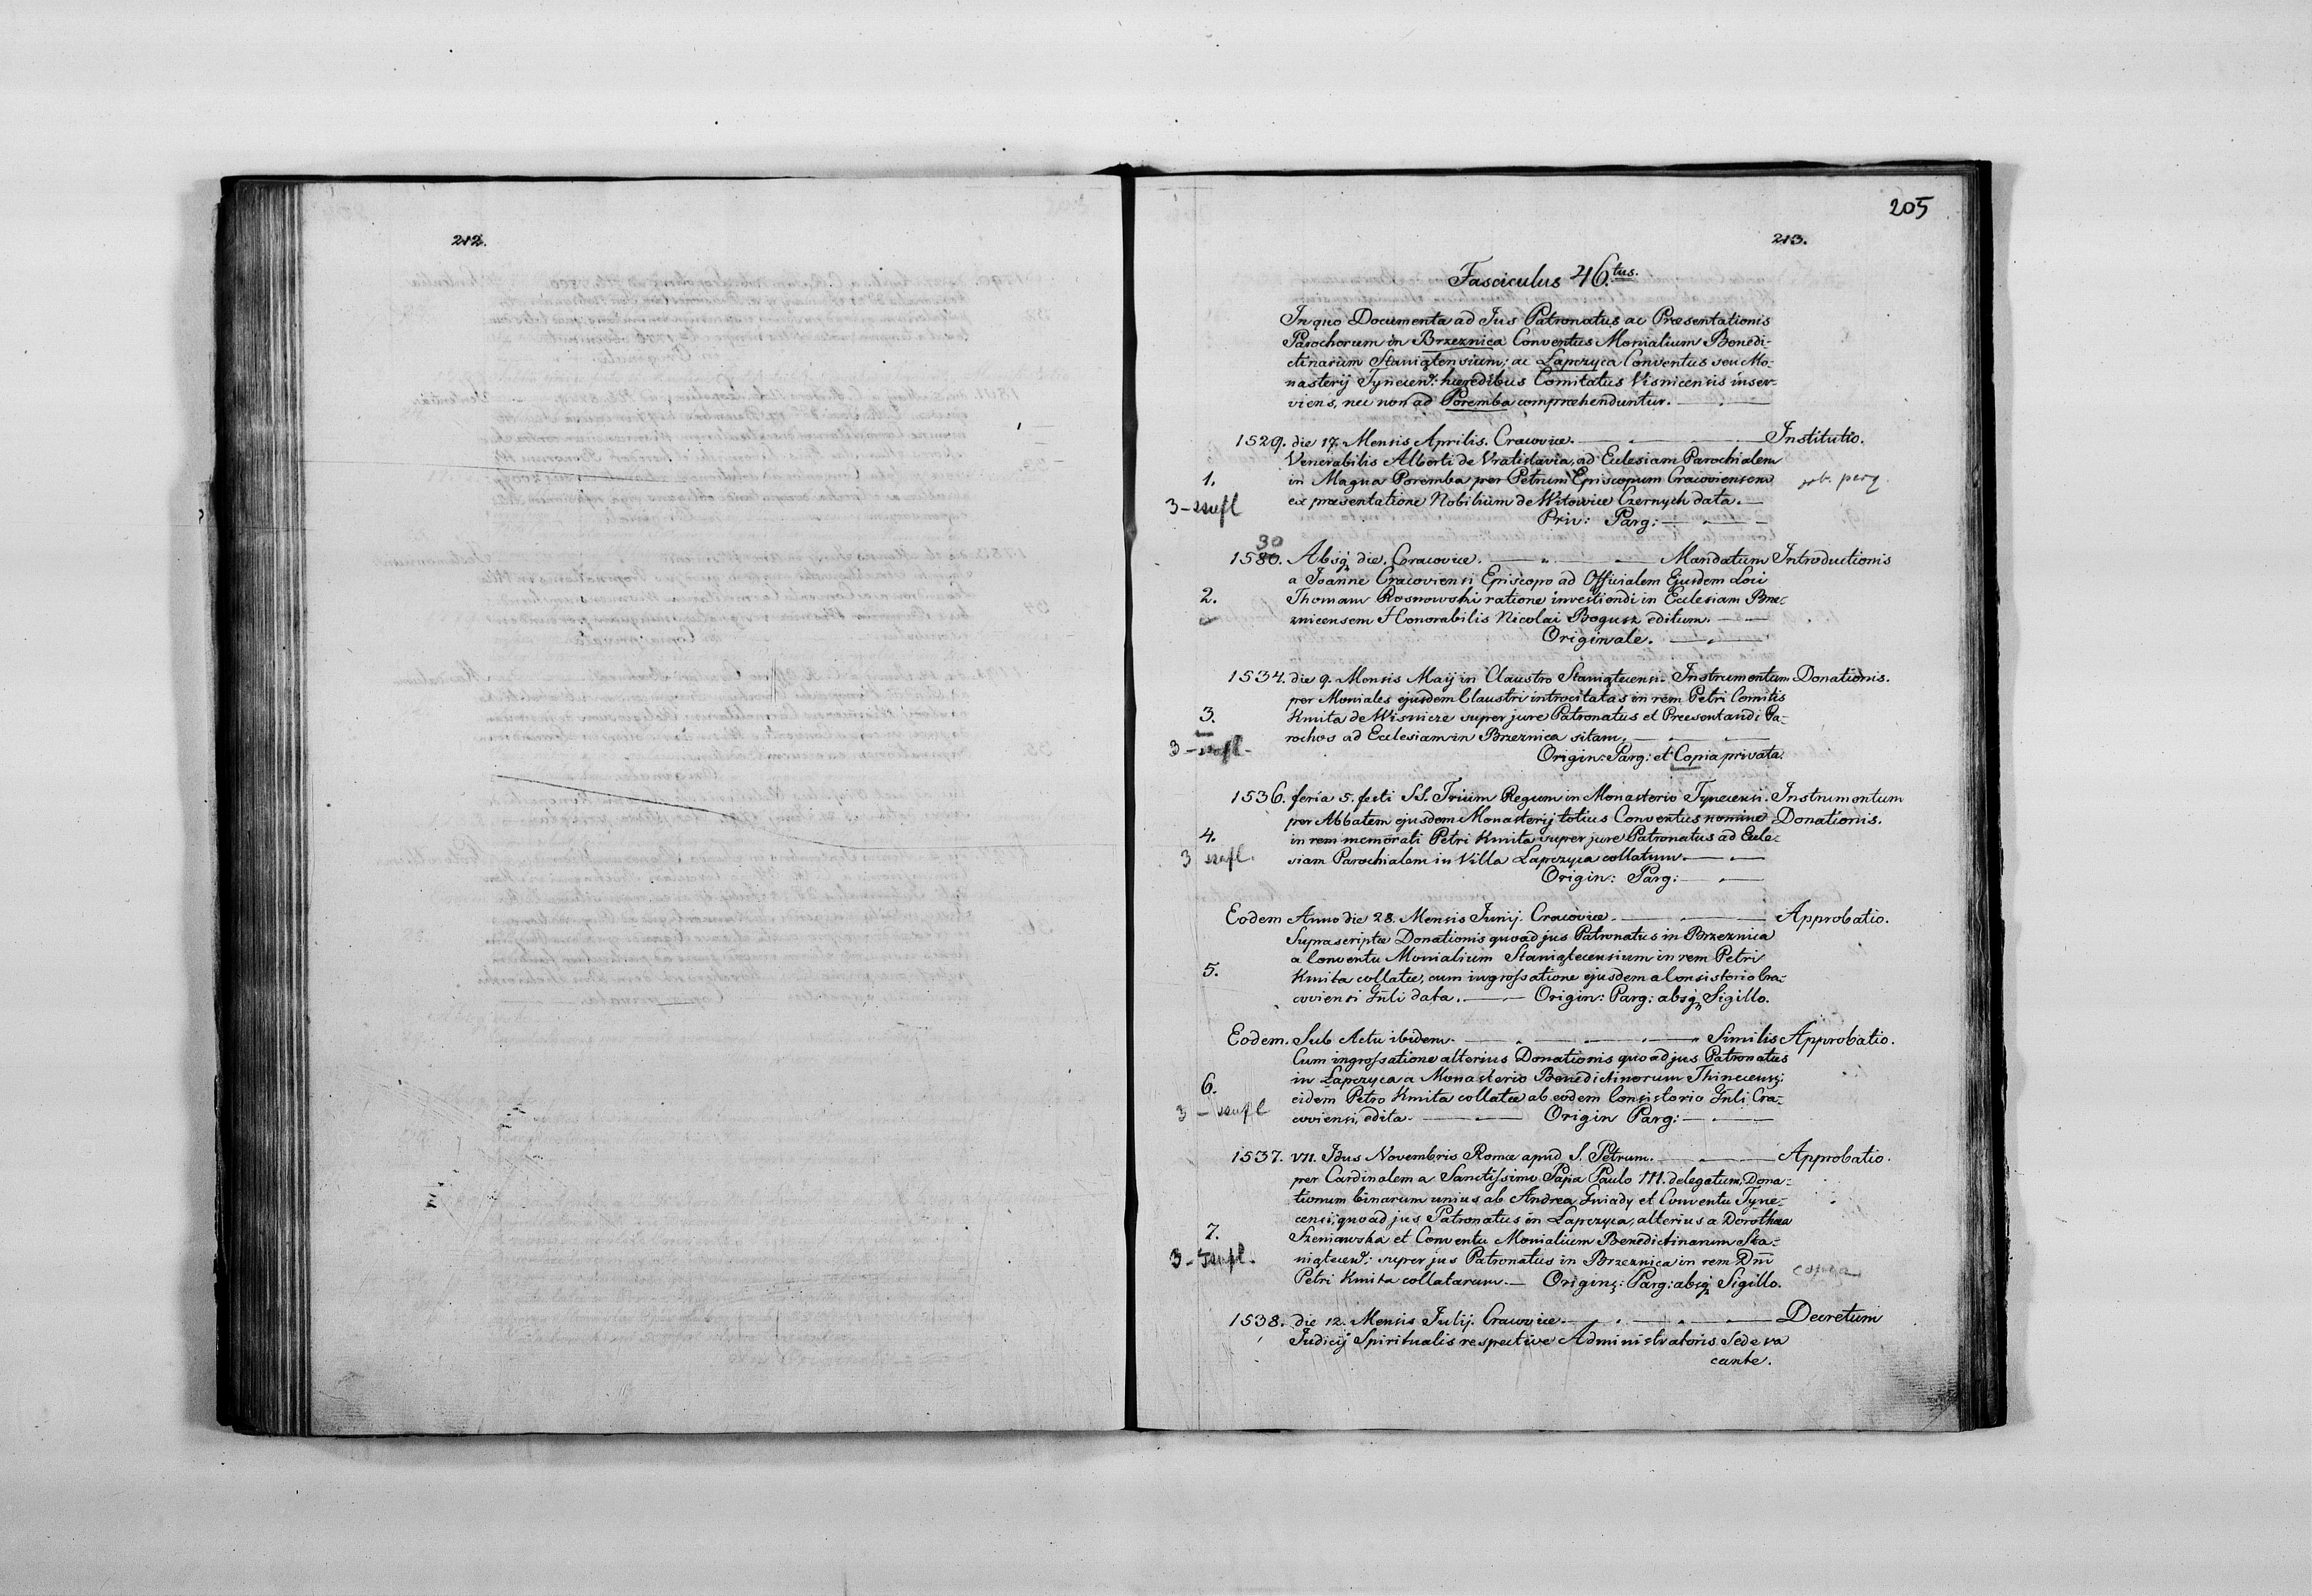 212.
205
213.
Fasciculus 46.tus.
In quo Documenta ad Jus Patronatus ac Præsentationis
Parochorum in Brzeznica Conventus Monialium Benedi-
ctinarum Staniątensium; ac Łapczyca Conventus seu Mo-
nasterij Tynecen: hæredibus Comitatus Visnicensis inser-
viens, nec non ad Poremba compræhenduntur.
1529. die 17. Mensis Aprilis. Cracoviæ. Institutio.
Venerabilis Alberti de Vratislavia, ad Ecclesiam Parochialem
1. in Magna Poremba per Petrum Episcopum Cracoviensem perg
3-szufl ex præsentatione Nobilium de Witowice Czernych data.
Priv: Parg:
30
1580. Absq die. Cracoviæ. Mandatum Introductionis
a Joanne Cracoviensi Episcopo ad Officialem Ejusdem Loci
2. Thomam Rosnowski ratione investiendi in Ecclesiam Brze-
znicensem Honorabilis Nicolai Bogusz editum.
Originale.
1534. die 9. Mensis Maij in Claustro Staniątecensi. Instrumentum Donationis.
per Moniales ejusdem Claustri introcitatas in rem Petri Comitis
3. Kmita de Wisnicze super jure Patronatus et Præsentandi Pa-
rochos ad Ecclesiam in Brzeznica sitam.
3-szufl- Origin: Parg: et Copia privata.
1536. feria 5. festi SS. Trium Regum in Monasterio Tynecensi. Instrumentum
per Abbatem ejusdem Monasterij totius Conventus nomine Donationis.
4. in rem memorati Petri Kmita super jure Patronatus ad Eccle-
3 szufl. siam Parochialem in Villa Łapczyca collatum.
Origin: Parg:
Eodem Anno die 28. Mensis Junij. Cracoviæ. Approbatio.
Suprascriptæ Donationis quoad jus Patronatus in Brzeznica
a Conventu Monialium Staniątecensium in rem Petri
5. Kmita collatæ, cum ingrossatione ejusdem a Consistorio Cra-
coviensi Gnli data. Origin: Parg: absq Sigillo.
Eodem. Sub Actu ibidem. Similis Approbatio.
Cum ingrossatione alterius Donationis quoad jus Patronatus
6. in Łapczyca a Monasterio Benedictinorum Thinecensi
3-szufl eidem Petro Kmita collatæ ab eodem Consistorio Gnli Cra-
coviensi, edita. Origin Parg:
1537. VII. Idus Novembris Romæ apud S. Petrum. Approbatio.
per Cardinalem a Sanctissimo Papa Paulo III. delegatum, Dona-
tionum binarum unius ab Andrea Gniady et Conventu Tyne-
censi, quoad jus Patronatus in Łapczyca, alterius a Dorothea
7. Szeniawska et Conventu Monialium Benedictinarum Sta-
3-szufl. niątecen: super jus Patronatus in Brzeznica in rem Dni
Petri Kmita collatarum. Origin: Parg: absq Sigillo. copia
1538. die 12. Mensis Julij. Cracoviæ. Decretum
Judicij Spiritualis respective Administratoris Sede va
cante.